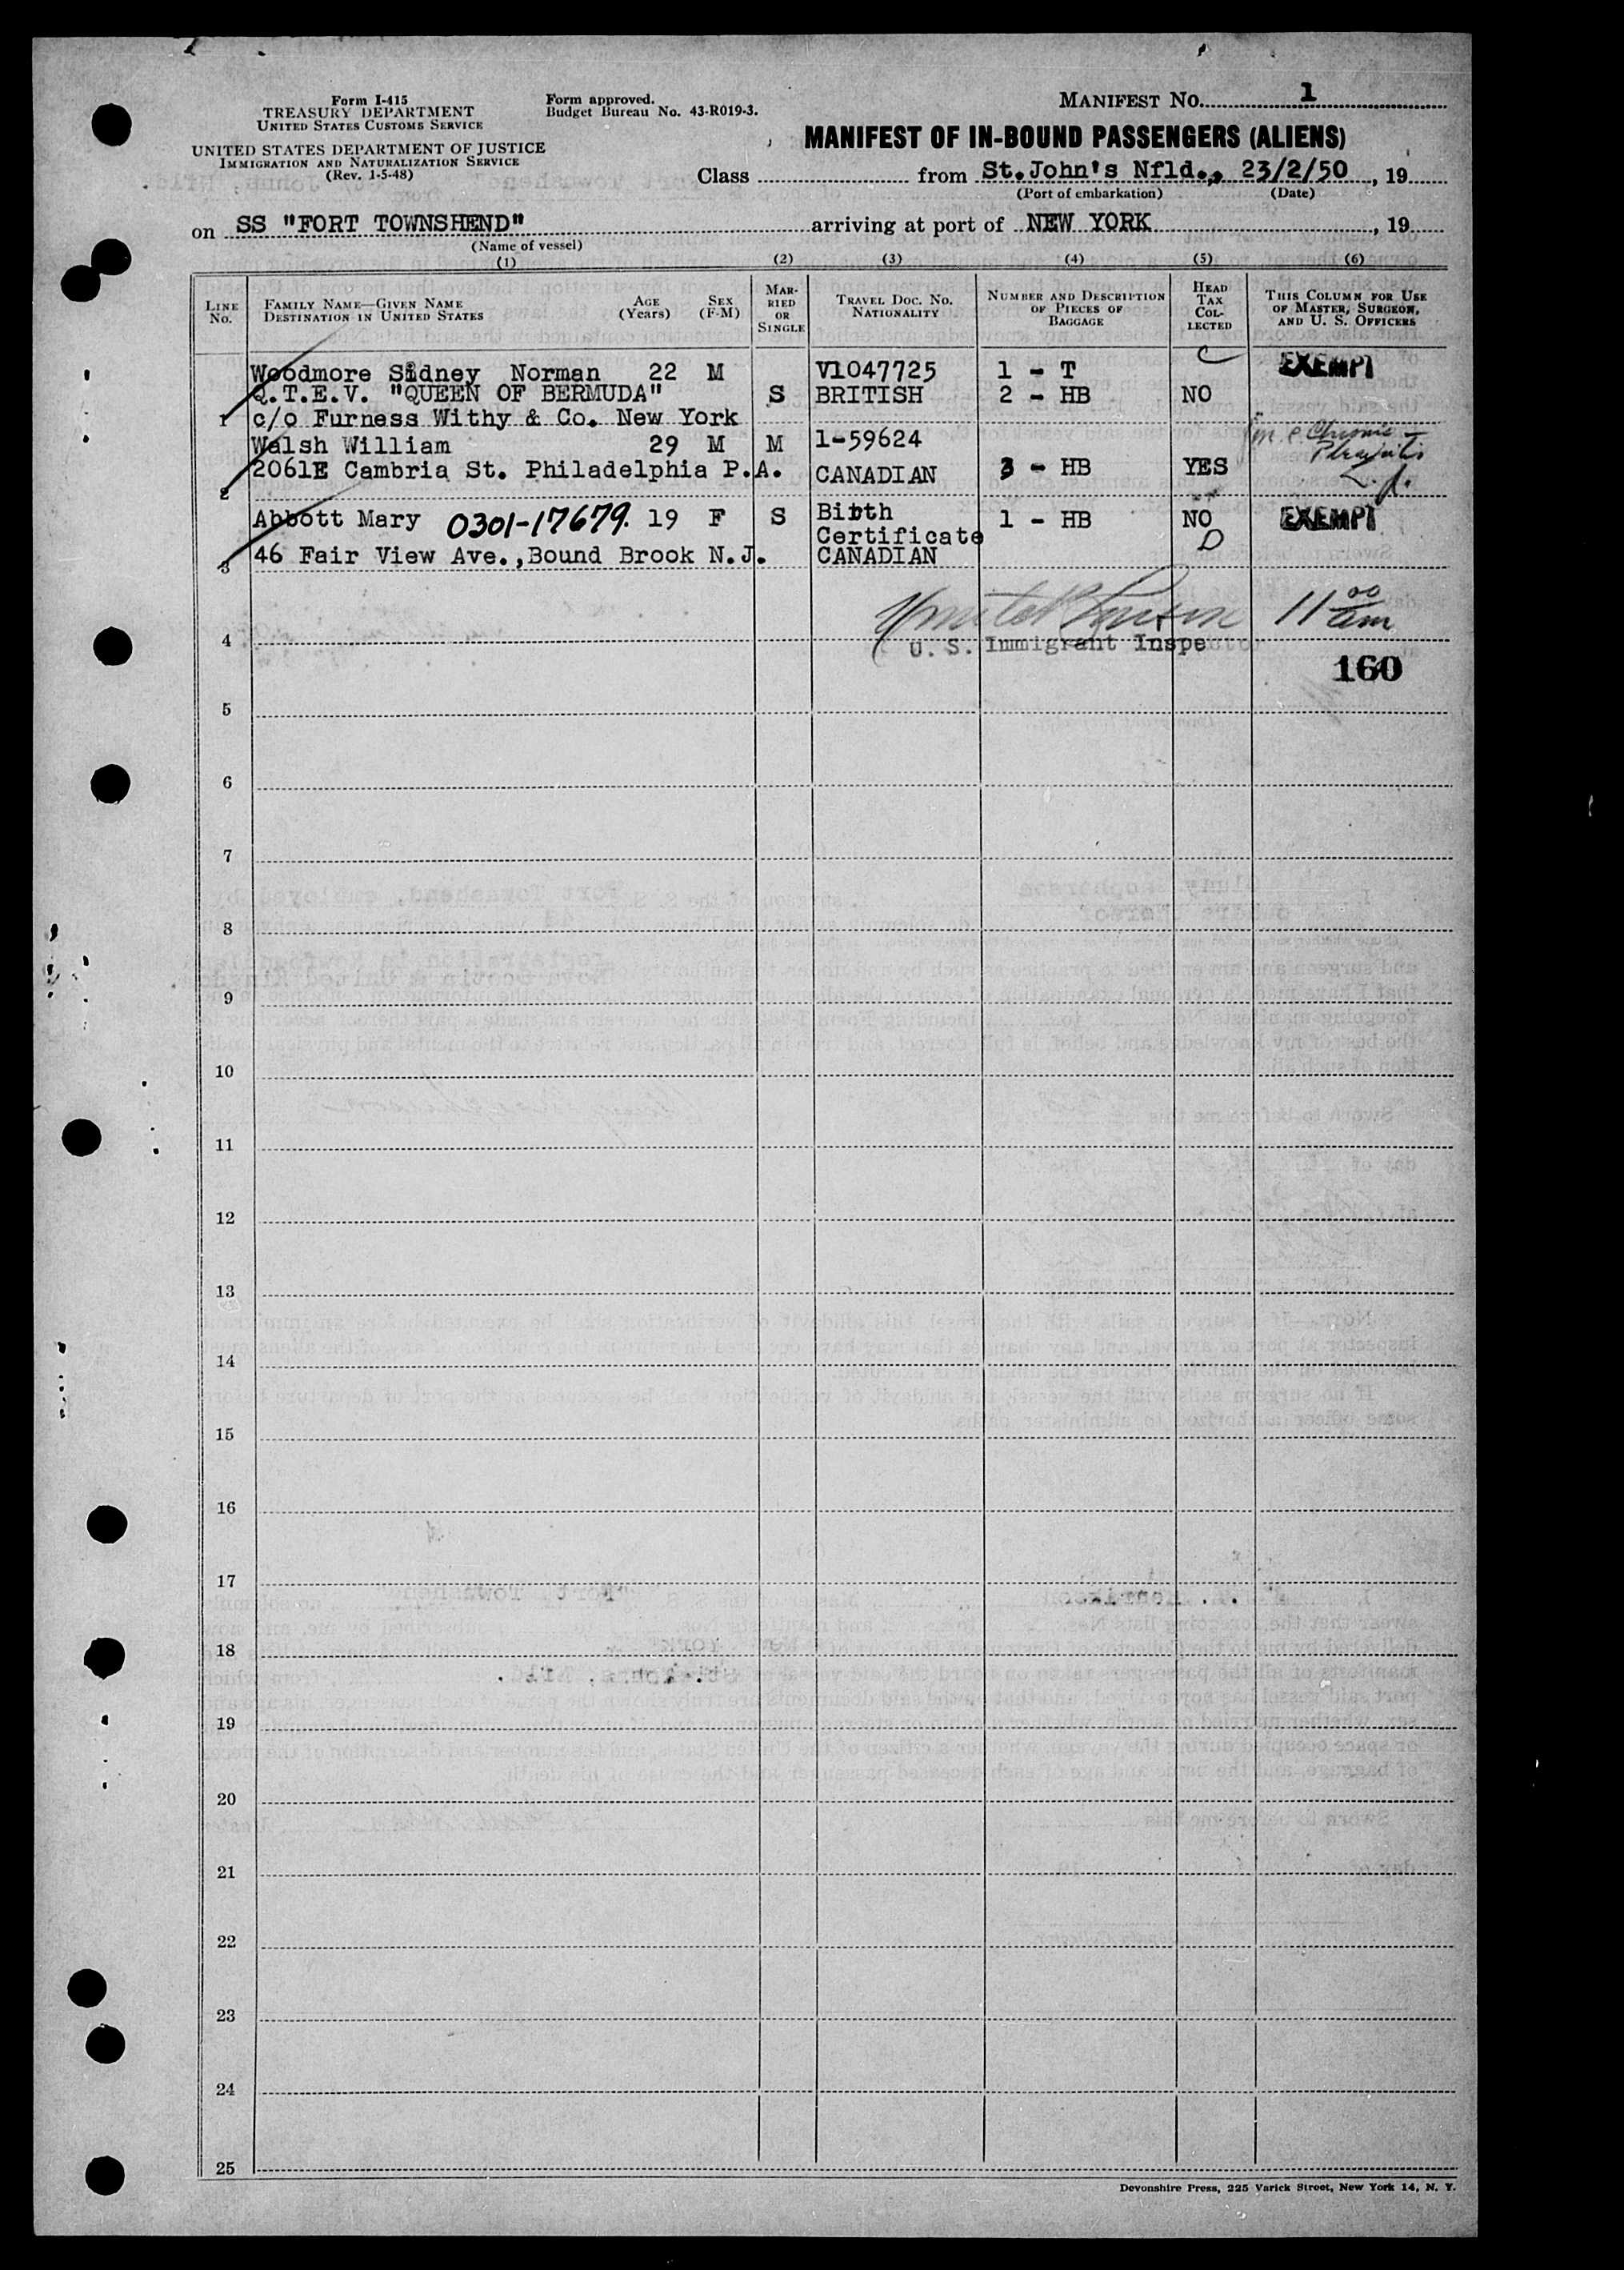 Form I-415
TREASURY DEPARTMENT
UNITED STATES CUSTOMS SERVICE
UNITED STATES DEPARTMENT OF JUSTICE
IMMIGRATION AND NATURALIZATION SERVICE
(Rev. 1-5-48)
Form approved.
Budget Bureau No. 43-R019-3.
MANIFEST NO. 1
MANIFEST OF IN-BOUND PASSENGERS (ALIENS)
Class from St.John's Nfld., 23/2/50, 19
(Port of embarkation) (Date)
on SS "FORT TOWNSHEND" arriving at port of NEW YORK, 19
(Name of vessel)
(1) (2) (3) (4) (5) (6)
LINE No. FAMILY NAME—GIVEN NAME DESTINATION IN UNITED STATES AGE (Years) SEX (F-M) MARRIED OR SINGLE TRAVEL DOC. NO. NATIONALITY NUMBER AND DESCRIPTION OF PIECES OF BAGGAGE HEAD TAX COLLECTED THIS COLUMN FOR USE OF MASTER, SURGEON, AND U. S. OFFICERS
Woodmore Sidney Norman 22 M V1047725 1 - T C EXEMPT
Q.T.E.V. "QUEEN OF BERMUDA" S BRITISH 2 - HB NO
1 c/o Furness Withy & Co. New York
Walsh William 29 M M 1-59624 Chronic
2061E Cambria St. Philadelphia P.A. CANADIAN 3 - HB YES
2
Abbott Mary 0301-17679. 19 F S Birth 1 - HB NO EXEMPT
Certificate D
3 46 Fair View Ave.,Bound Brook N.J. CANADIAN
11 00 am
4 U. S. Immigrant Inspector
160
5
6
7
8
9
10
11
12
13
14
15
16
17
18
19
20
21
22
23
24
25
Devonshire Press, 225 Varick Street, New York 14, N. Y.